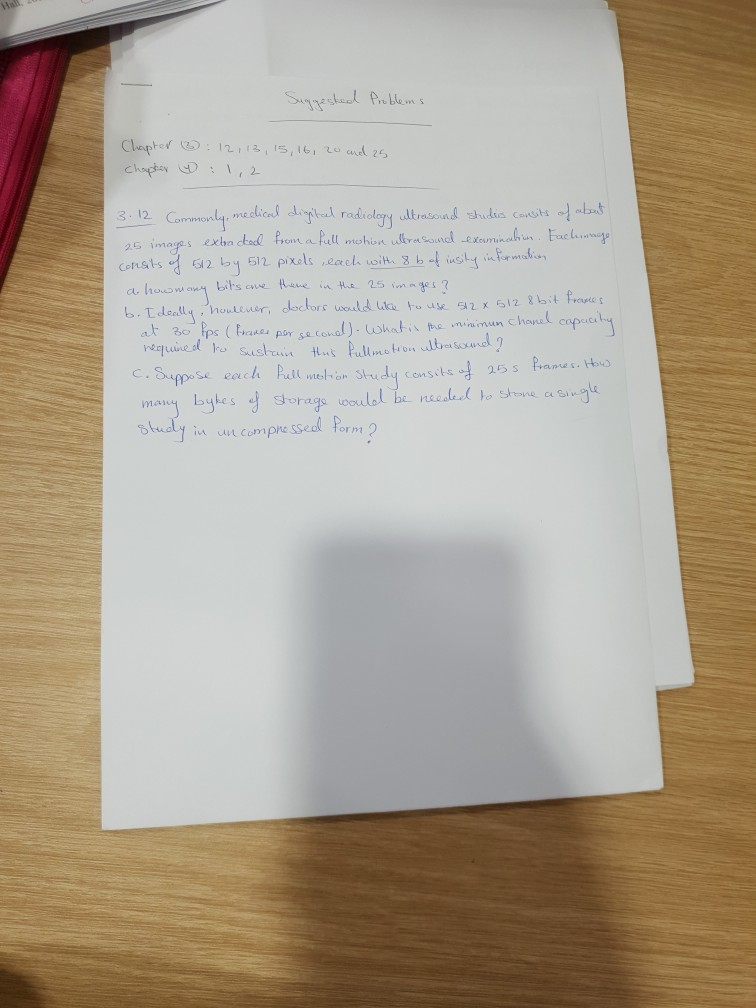 Hall,
Suggested Problems
Chapter (3) : 12, 13, 15, 16, 20 and 25
Chapter (4) : 1, 2
3.12 Commonly, medical digital radiology ultrasound studies consits of about
25 images extracted from a full motion ultrasound examination. Each image
consits of 512 by 512 pixels, each with 8 b of insity information
a how many bits are there in the 25 images?
b. Ideally, however, doctors would like to use 512 x 512 8 bit frames
at 30 fps (frames per second). What is the minimun chanel capacity
required to sustain this fullmotion ultrasound?
C. Suppose each full motion study consits of 25 s frames. How
many bytes of storage would be needed to store a single
study in uncompressed form?